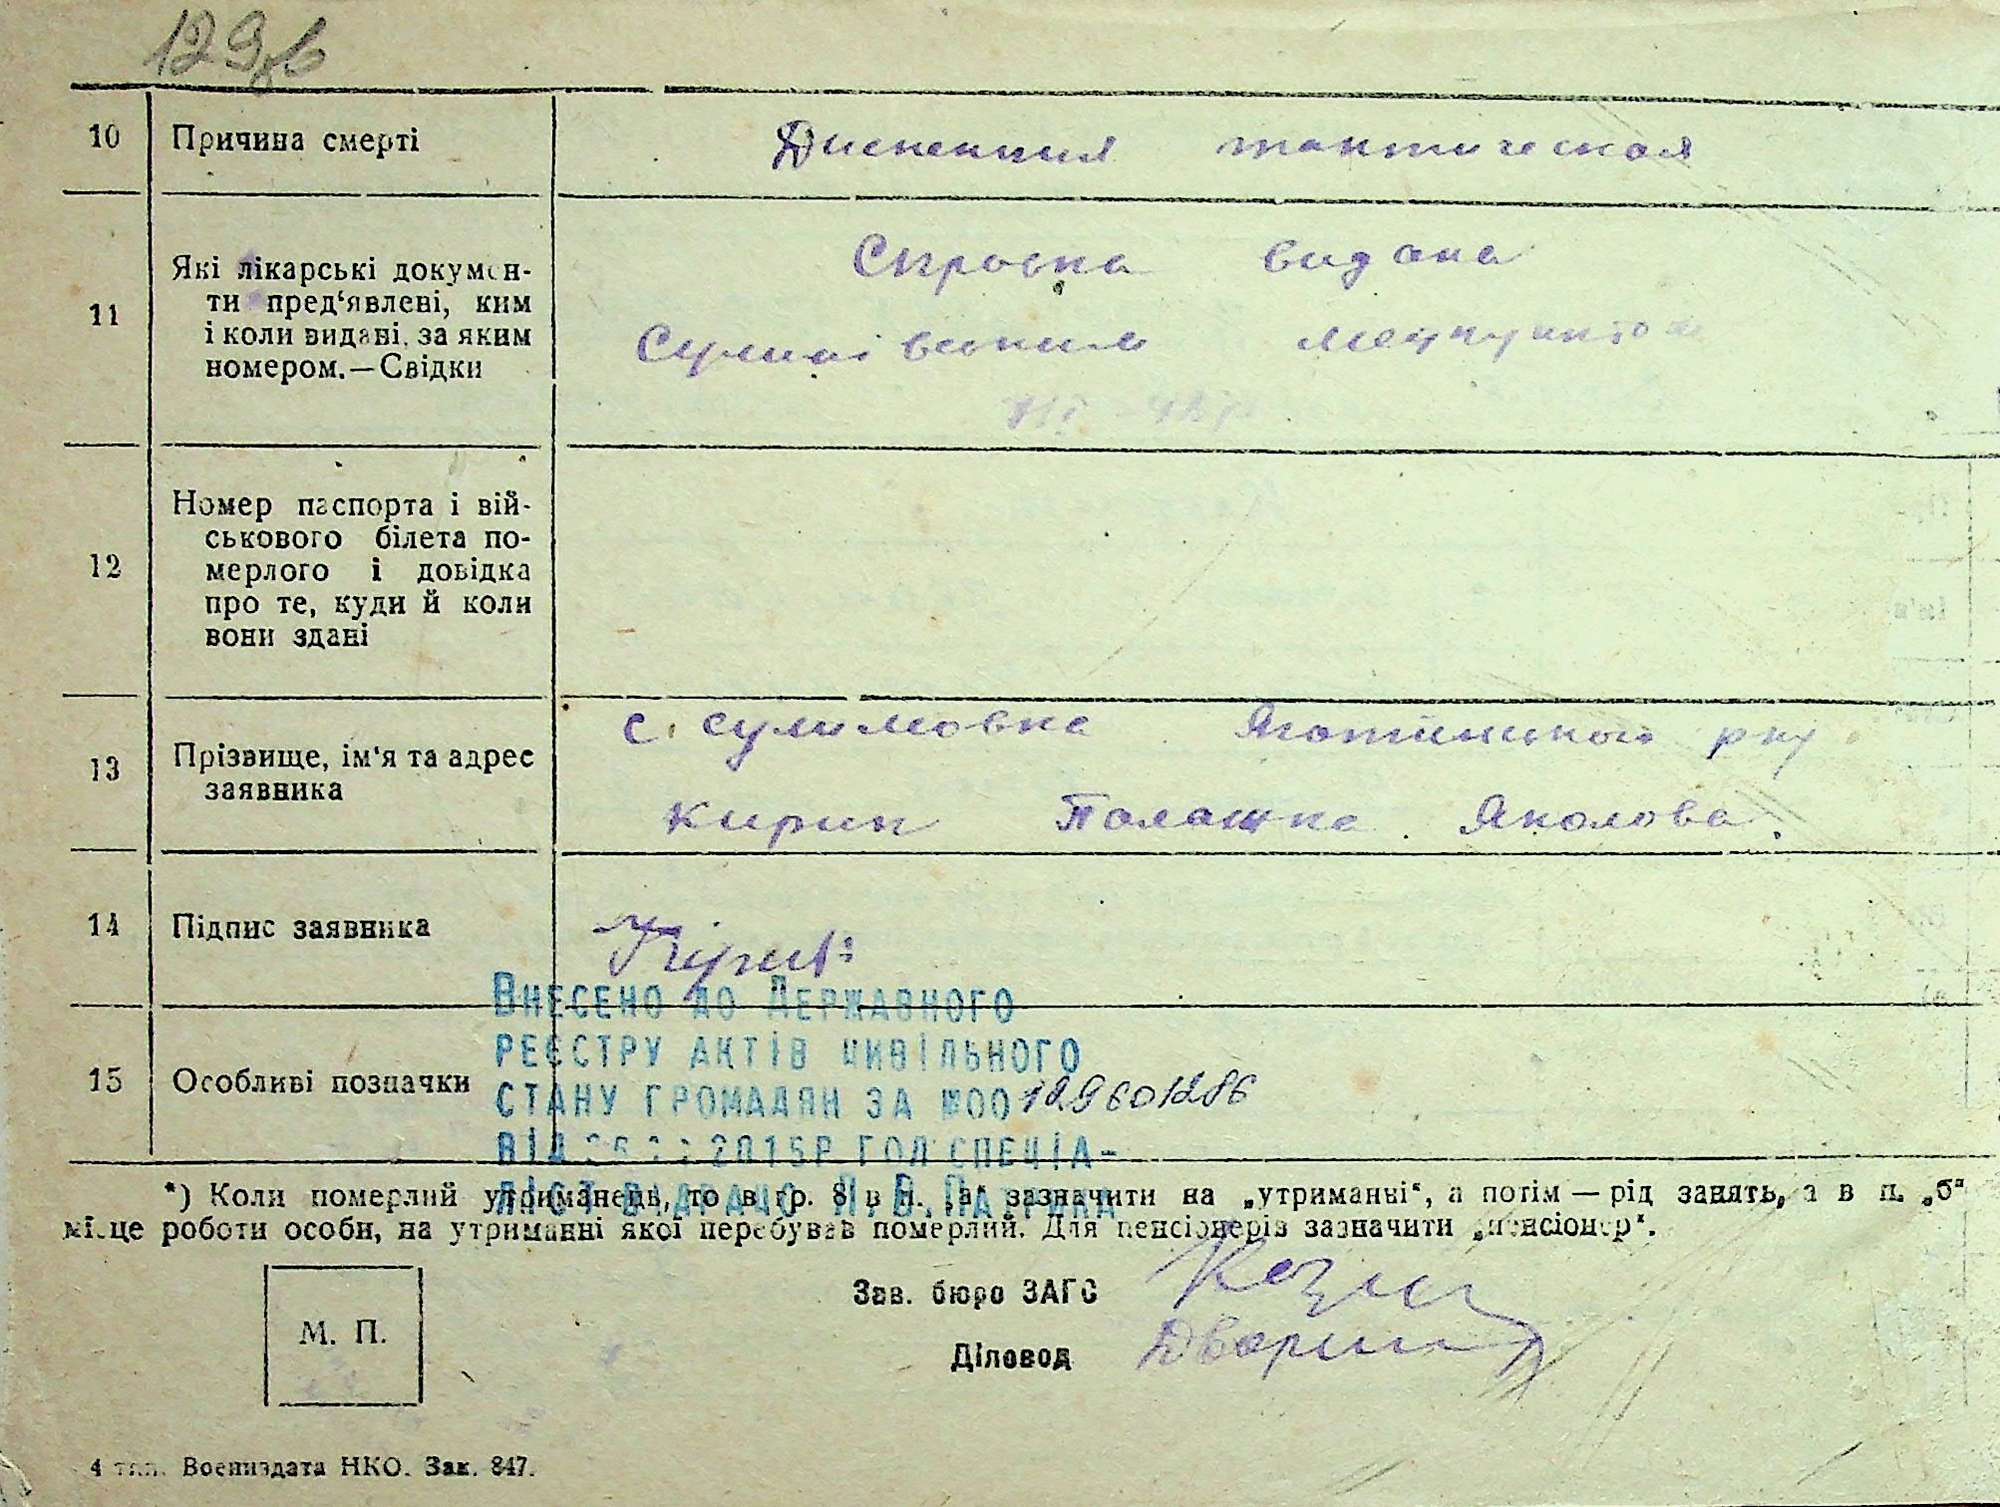 129зв
10 Причина смерті Диспепсия токтическая
11 Які лікарські докумен-
ти пред'явлені, ким
і коли видані, за яким
номером.—Свідки
Справка видана
Сулимівским медпунктом
12 Номер паспорта і вій-
ськового білета по-
мерлого і довідка
про те, куди й коли
вони здані
13 Прізвище, ім'я та адрес
заявника
с. Сулимовка Яготинського р-ну
Кирик Палашка Яколова.
14 Підпис заявника
15 Особливі позначки
Внесено до Державного
реєстру актів цивільного
стану громадян за №00129601286
від 2015р гол спеціа-
ліст
*) Коли померлий утриманець, то в гр. 8 в п. „а“ зазначити на „утриманні“, а потім — рід занять, а в п. „б“
місце роботи особи, на утриманні якої перебував померлий. Для пенсіонерів зазначити „пенсіонер“.
М. П.
Зав. бюро ЗАГС
Діловод
4 тип. Воениздата НКО. Зак. 847.